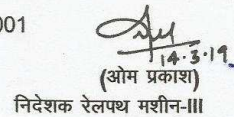 001
14.3.19
(ओम प्रकाश)
निदेशक रेलपथ मशीन-III